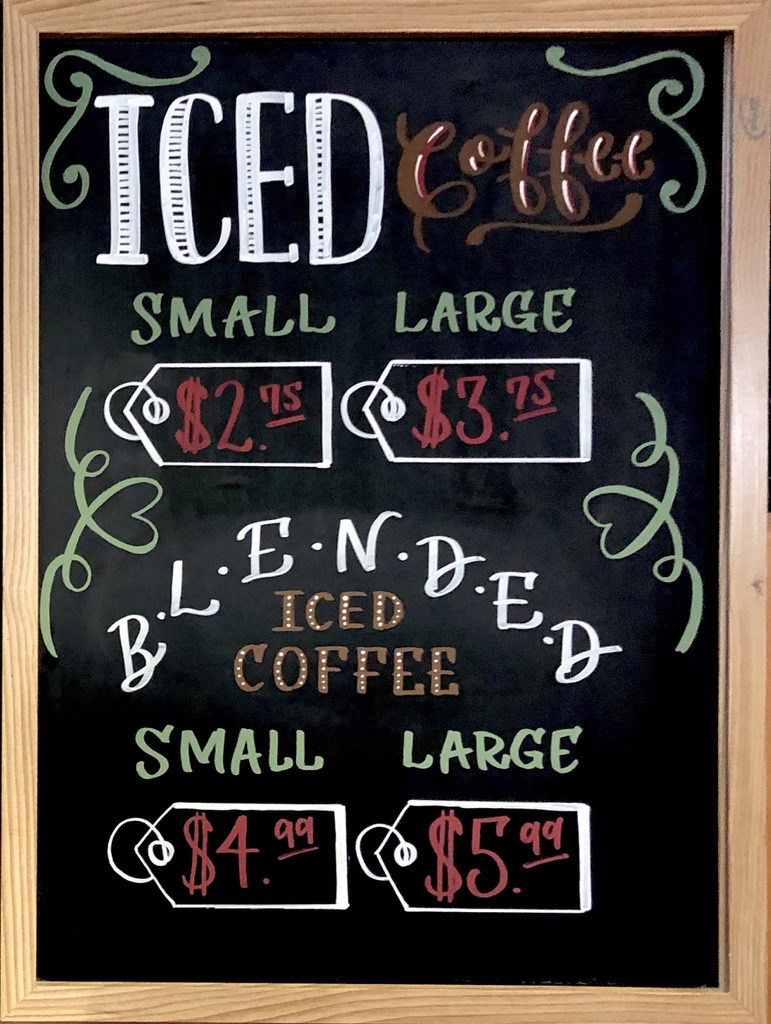 ICED Coffee
SMALL LARGE
$2.75 $3.75
B·L·E·N·D·E·D
ICED
COFFEE
SMALL LARGE
$4.99 $5.99